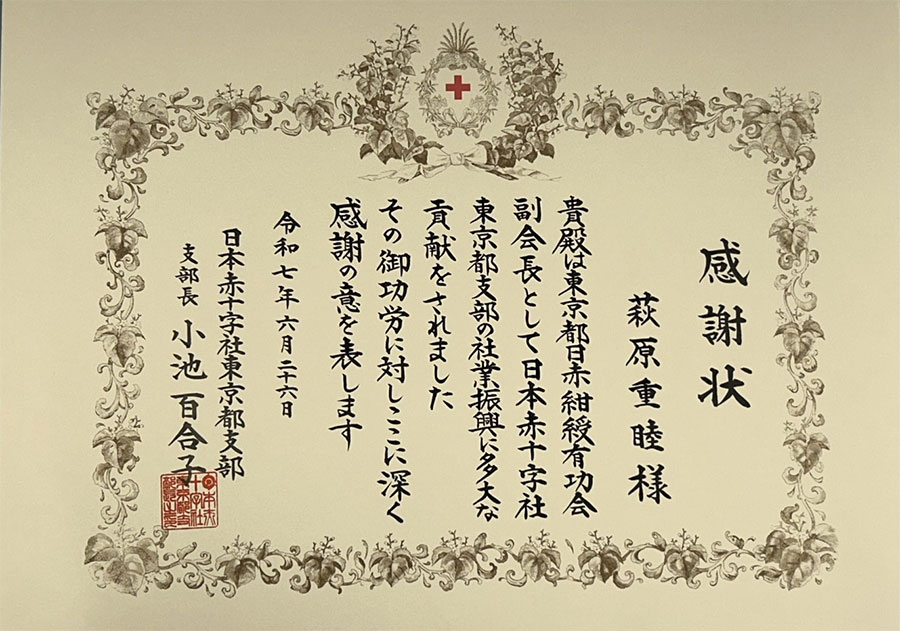 感謝状
萩原重睦様
貴殿は東京都日赤紺綬有功会
副会長として日本赤十字社
東京都支部の社業振興に多大な
貢献をされました
その御功労に対しここに深く
感謝の意を表します
令和七年六月二十六日
日本赤十字社東京都支部
支部長 小池百合子